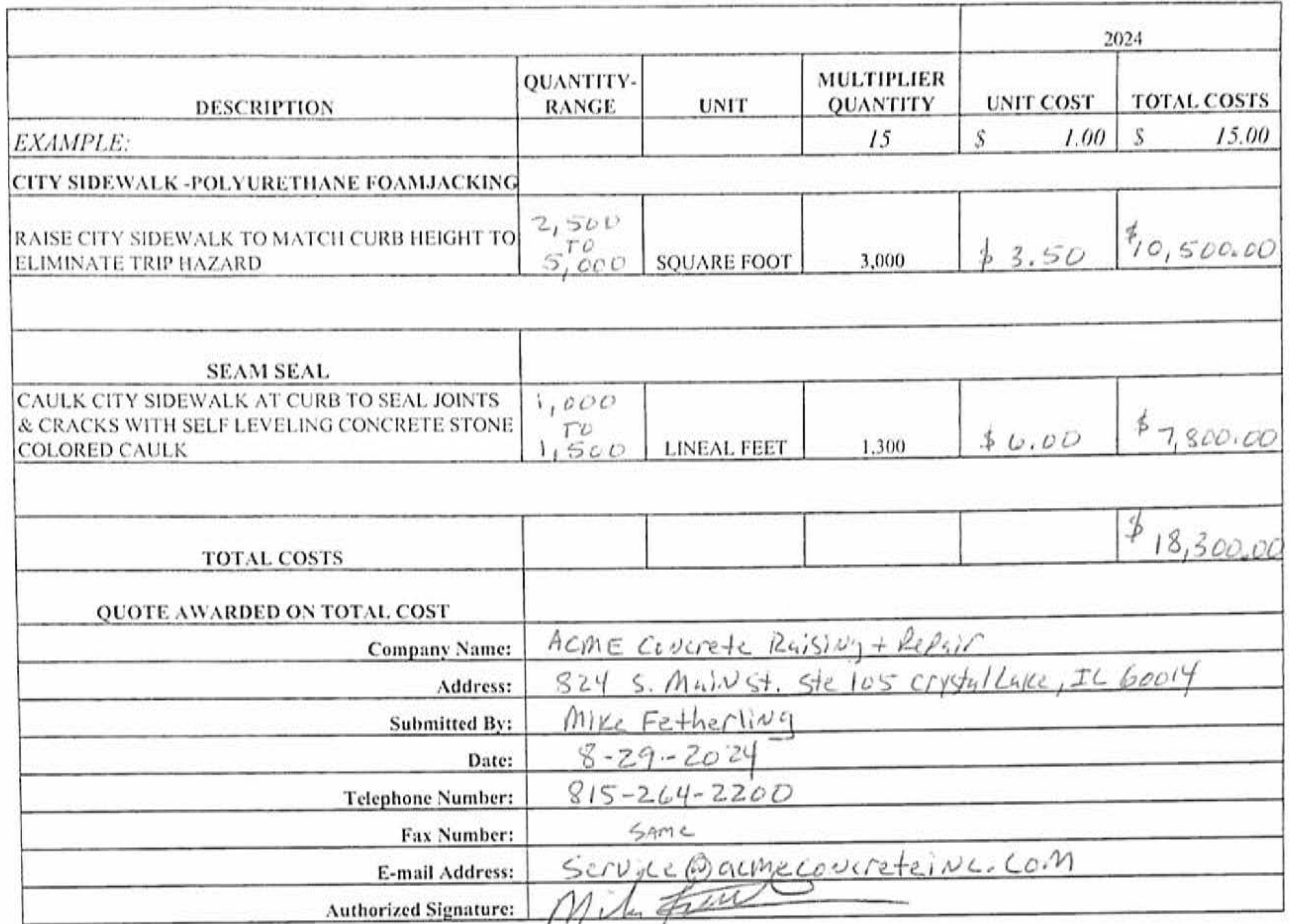 2024
DESCRIPTION QUANTITY-RANGE UNIT MULTIPLIER QUANTITY UNIT COST TOTAL COSTS
EXAMPLE: 15 $ 1.00 $ 15.00
CITY SIDEWALK -POLYURETHANE FOAMJACKING
RAISE CITY SIDEWALK TO MATCH CURB HEIGHT TO
ELIMINATE TRIP HAZARD 2,500 TO 5,000 SQUARE FOOT 3,000 $ 3.50 $10,500.00
SEAM SEAL
CAULK CITY SIDEWALK AT CURB TO SEAL JOINTS
& CRACKS WITH SELF LEVELING CONCRETE STONE
COLORED CAULK 1,000 TO 1,500 LINEAL FEET 1,300 $ 6.00 $ 7,800.00
TOTAL COSTS $ 18,300.00
QUOTE AWARDED ON TOTAL COST
Company Name: ACME Concrete Raising + Repair
Address: 824 S. Main St. Ste 105 Crystal Lake, IL 60014
Submitted By: Mike Fetherling
Date: 8-29-2024
Telephone Number: 815-264-2200
Fax Number: SAME
E-mail Address: Service@acmeconcreteinc.com
Authorized Signature: